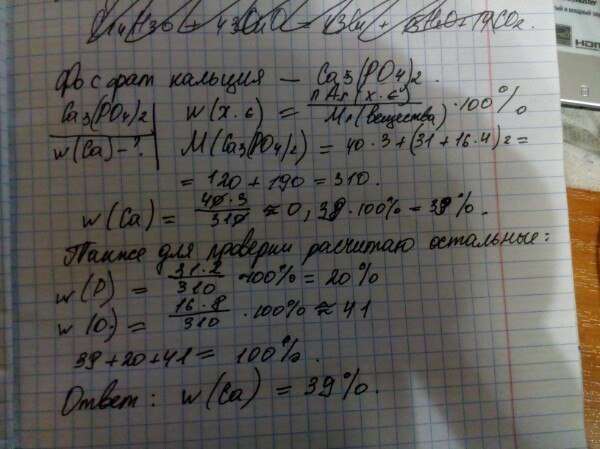 Фосфат кальция – Ca3(PO4)2.
Ca3(PO4)2 w(х.э) = nAr(х.э) / Mr(вещества) · 100%
w(Ca) – ? M(Ca3(PO4)2) = 40·3+(31+16·4)2 =
= 120 + 190 = 310.
w(Ca) = 40·3 / 310 ≈ 0,39·100% = 39%.
Также для проверки расчитаю остальные:
w(P) = 31·2 / 310 ·100% = 20%
w(O) = 16·8 / 310 · 100% ≈ 41
39+20+41 = 100%.
Ответ: w(Ca) = 39%.